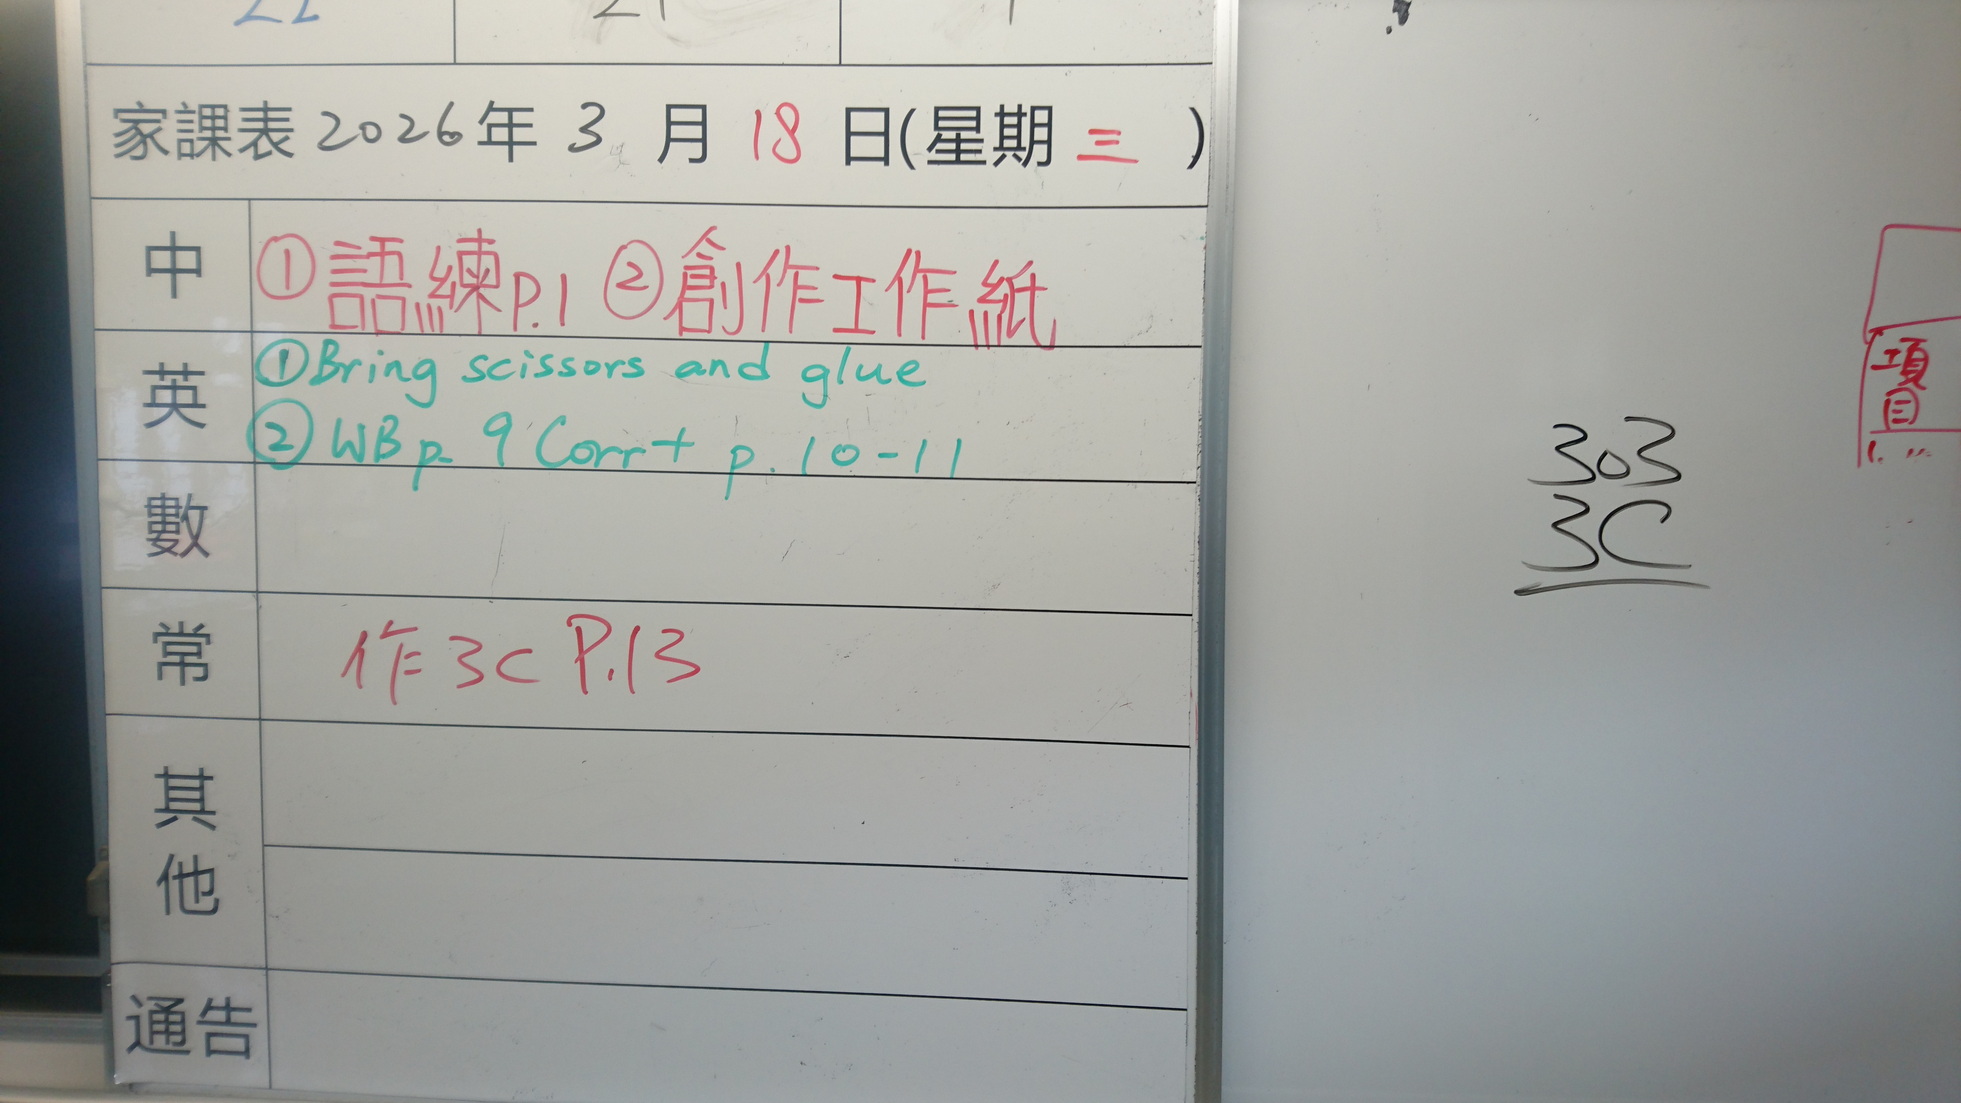 家課表 2026年 3 月 18 日(星期 三 )
中 ①語練P.1 ②創作工作紙
英 ①Bring scissors and glue
②WB p. 9 Corr + p. 10-11
數
常 作3C P.13
其他
通告
303
3C
項目
1. ...